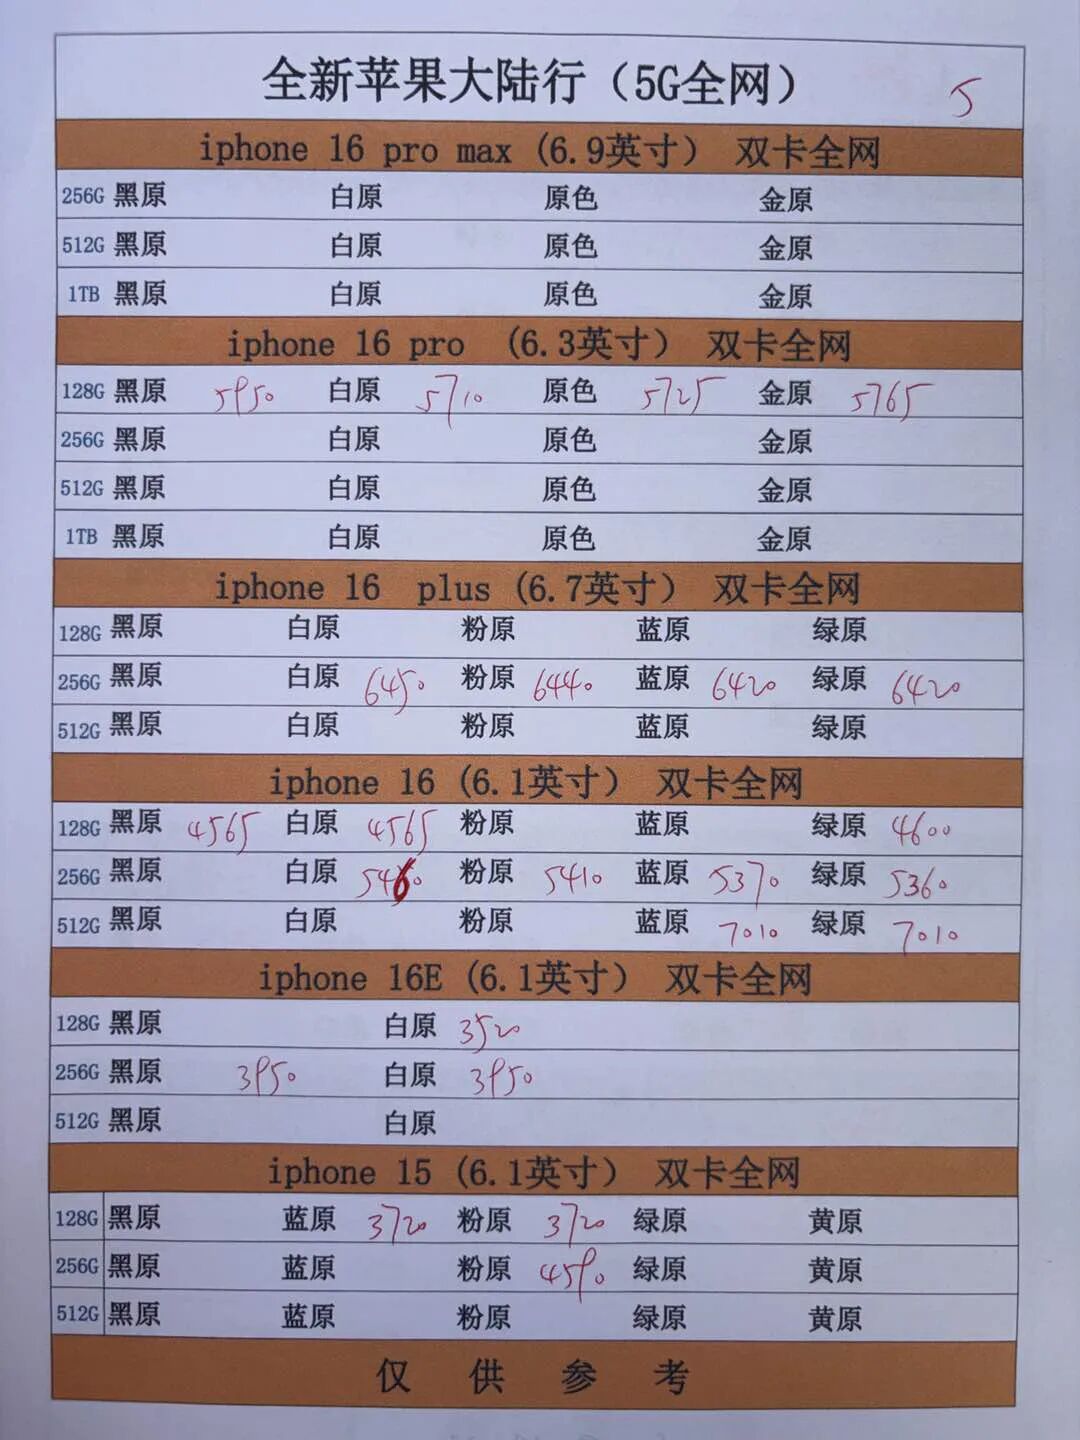 全新苹果大陆行（5G全网） 5
iphone 16 pro max (6.9英寸） 双卡全网
256G 黑原 白原 原色 金原
512G 黑原 白原 原色 金原
1TB 黑原 白原 原色 金原
iphone 16 pro （6.3英寸） 双卡全网
128G 黑原 5950 白原 5710 原色 5725 金原 5765
256G 黑原 白原 原色 金原
512G 黑原 白原 原色 金原
1TB 黑原 白原 原色 金原
iphone 16 plus (6.7英寸） 双卡全网
128G 黑原 白原 粉原 蓝原 绿原
256G 黑原 白原 6450 粉原 6440 蓝原 6420 绿原 6420
512G 黑原 白原 粉原 蓝原 绿原
iphone 16 (6.1英寸） 双卡全网
128G 黑原 4565 白原 4565 粉原 蓝原 绿原 4600
256G 黑原 白原 5460 粉原 5410 蓝原 5370 绿原 5360
512G 黑原 白原 粉原 蓝原 7010 绿原 7010
iphone 16E (6.1英寸） 双卡全网
128G 黑原 白原 3520
256G 黑原 3950 白原 3950
512G 黑原 白原
iphone 15 (6.1英寸） 双卡全网
128G 黑原 蓝原 3720 粉原 3720 绿原 黄原
256G 黑原 蓝原 粉原 4590 绿原 黄原
512G 黑原 蓝原 粉原 绿原 黄原
仅供参考